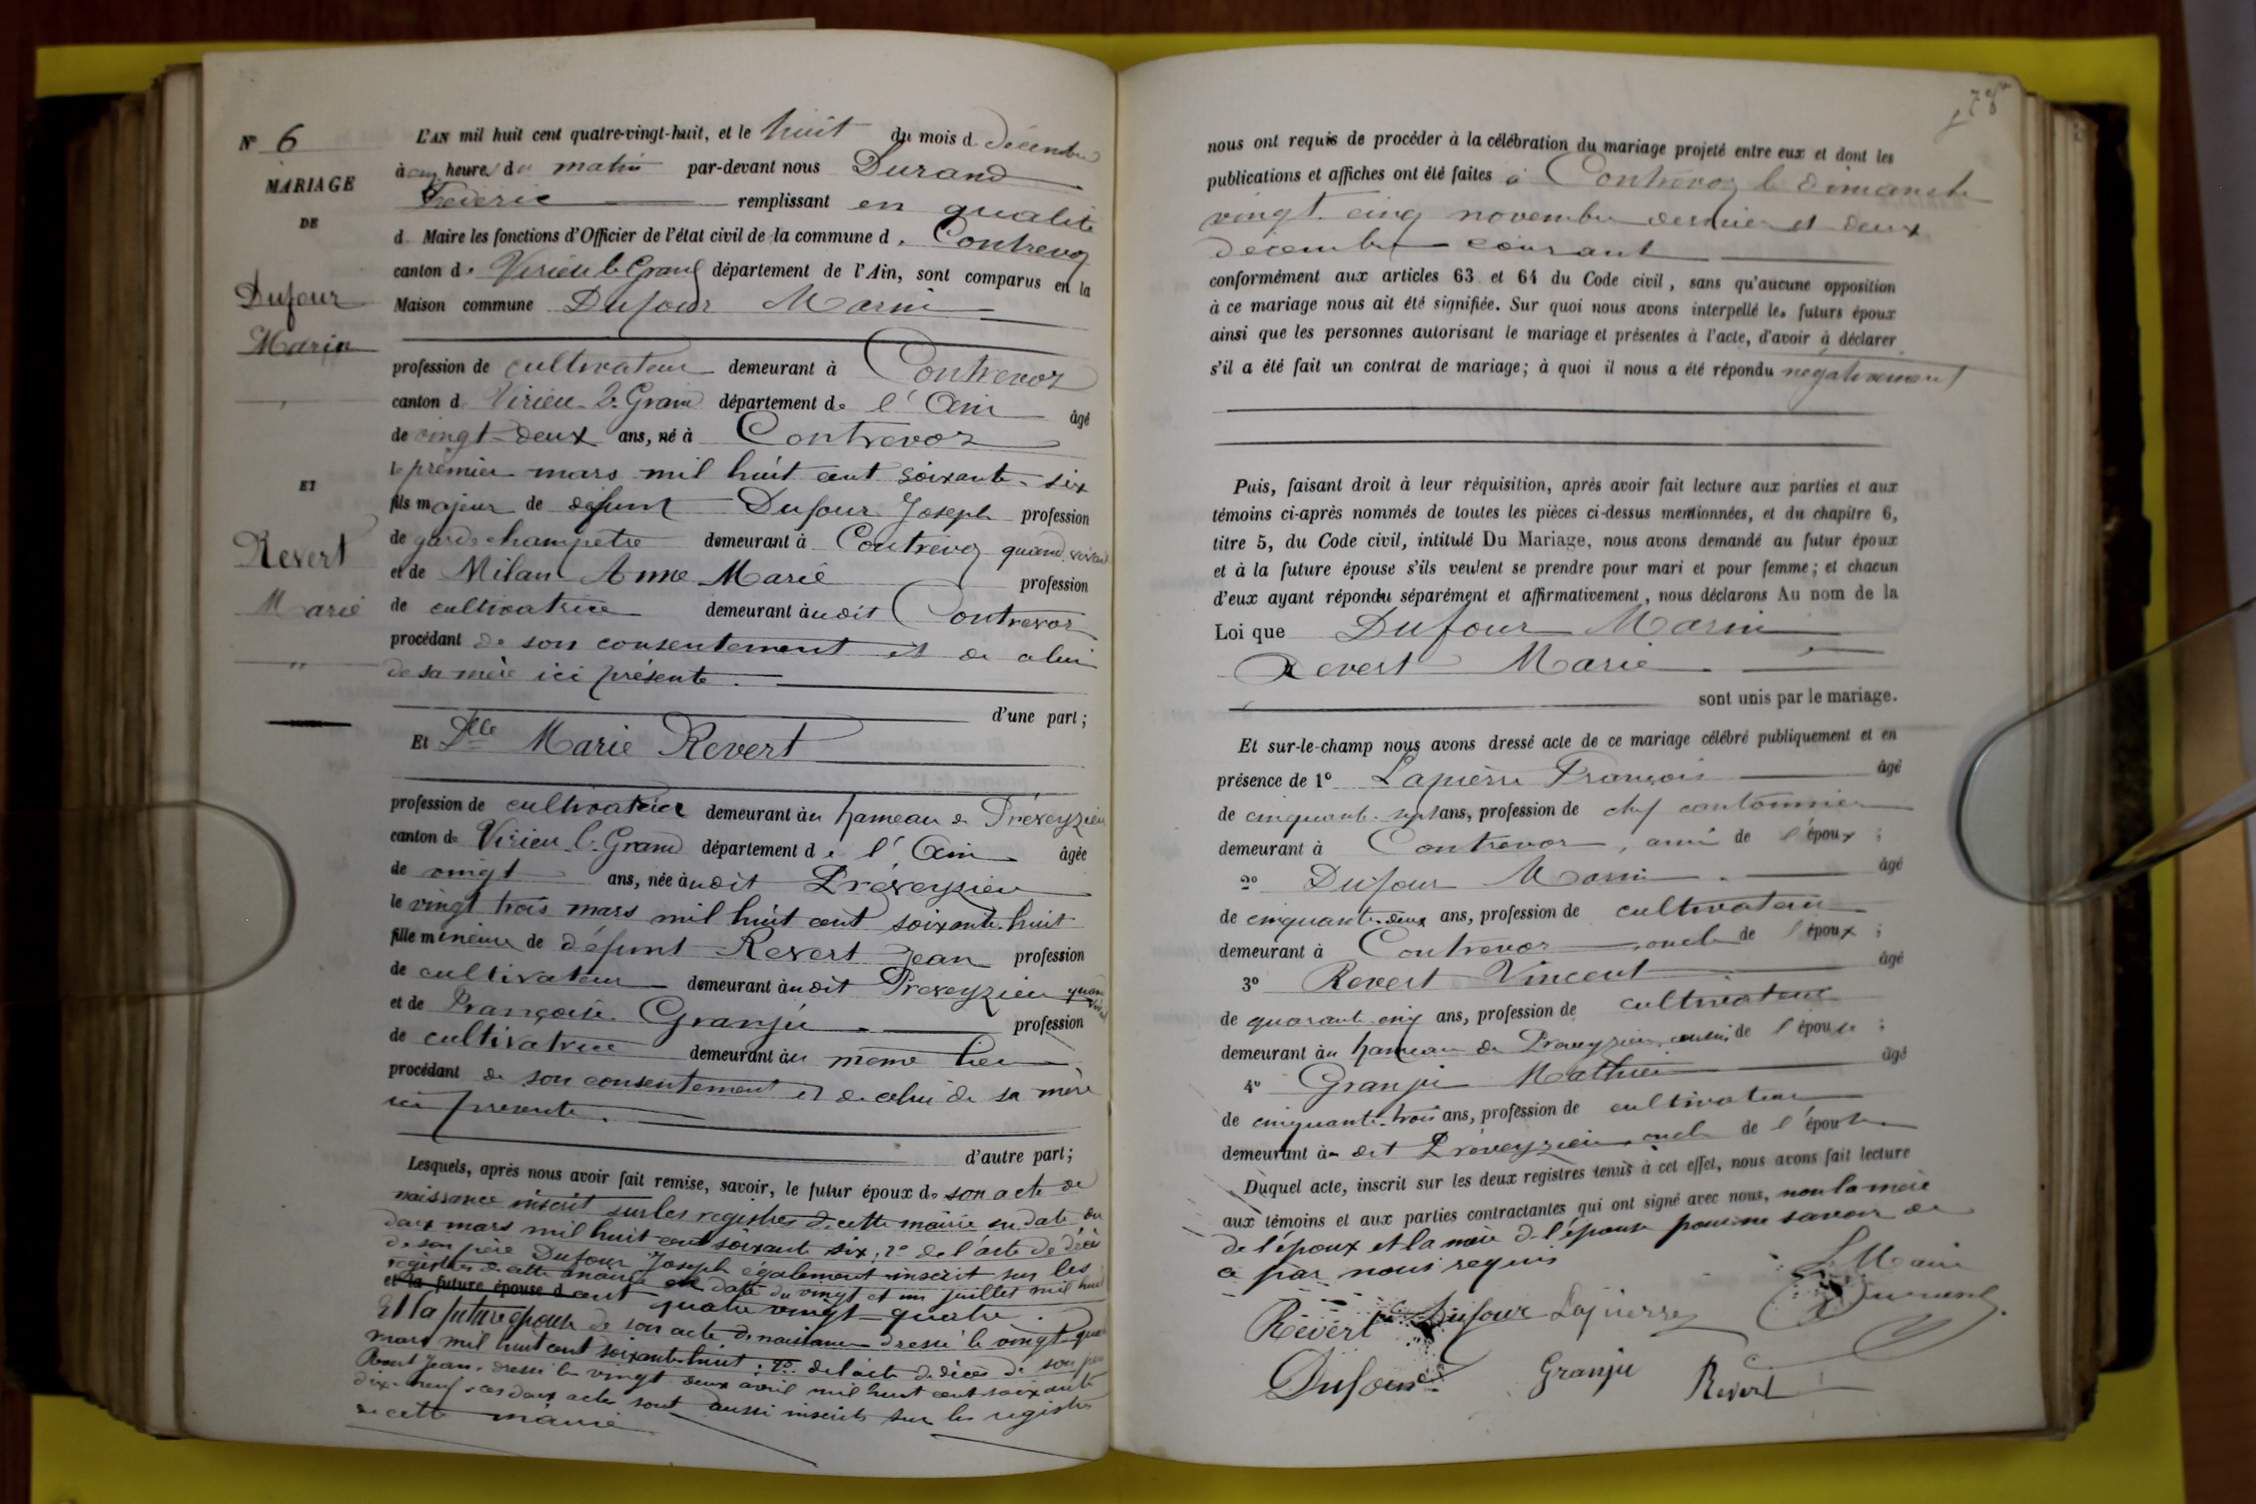 N° 6
MARIAGE
DE
Dufour
Marin
ET
Revert
Marie
L'AN mil huit cent quatre-vingt-huit, et le huit du mois d décembre
à cinq heures du matin par-devant nous Durand
Fréderic remplissant en qualité
d. Maire les fonctions d'Officier de l'état civil de la commune de Contrevoz
canton de Virieu le Grand département de l'Ain, sont comparus en la
Maison commune Dufour Marin
profession de cultivateur demeurant à Contrevoz
canton d Virieu-le-Grand département de l'Ain âgé
de vingt-deux ans, né à Contrevoz
le premier mars mil huit cent soixante-six
fils majeur de défunt Dufour Joseph profession
de garde champêtre demeurant à Contrevoz quand vivait
et de Milan Anne Marie profession
de cultivatrice demeurant àudit Contrevoz
procédant de son consentement et de celui
de sa mère ici présente.
d'une part;
Et Dlle Marie Revert
profession de cultivatrice demeurant àu hameau de Préveyzieu
canton de Virieu-le-Grand département de l'Ain âgée
de vingt ans, née àudit Préveyzieu
le vingt trois mars mil huit cent soixante-huit
fille mineure de défunt Revert Jean profession
de cultivateur demeurant àudit Préveyzieu quand vivait
et de Françoise Granju profession
de cultivatrice demeurant àu même lieu
procédant de son consentement et de celui de sa mère
ici présente.
d'autre part;
Lesquels, après nous avoir fait remise, savoir, le futur époux de son acte de
naissance inscrit sur les registres de cette mairie en date du
deux mars mil huit cent soixante six; 2° de l'acte de décès
de son père Dufour Joseph également inscrit sur les
registres de cette mairie en date du vingt et un juillet mil huit
et la future épouse d cent quatre vingt-quatre.
Et la future épouse de son acte de naissance dressé le vingt-quatre
mars mil huit cent soixante-huit; 2° de l'acte de décès de son père
Revert Jean, dressé le vingt deux avril mil huit cent soixante
dix-neuf, ces deux actes sont aussi inscrits sur les registres
de cette mairie
78
nous ont requis de procéder à la célébration du mariage projeté entre eux et dont les
publications et affiches ont été faites à Contrevoz le dimanche
vingt cinq novembre dernier et deux
décembre courant
conformément aux articles 63 et 64 du Code civil, sans qu'aucune opposition
à ce mariage nous ait été signifiée. Sur quoi nous avons interpellé les futurs époux
ainsi que les personnes autorisant le mariage et présentes à l'acte, d'avoir à déclarer
s'il a été fait un contrat de mariage; à quoi il nous a été répondu négativement
Puis, faisant droit à leur réquisition, après avoir fait lecture aux parties et aux
témoins ci-après nommés de toutes les pièces ci-dessus mentionnées, et du chapitre 6,
titre 5, du Code civil, intitulé Du Mariage, nous avons demandé au futur époux
et à la future épouse s'ils veulent se prendre pour mari et pour femme; et chacun
d'eux ayant répondu séparément et affirmativement, nous déclarons Au nom de la
Loi que Dufour Marin
Revert Marie
sont unis par le mariage.
Et sur-le-champ nous avons dressé acte de ce mariage célébré publiquement et en
présence de 1° Lapierre François âgé
de cinquante-sept ans, profession de chef cantonnier
demeurant à Contrevoz, ami de l'époux;
2° Dufour Marin âgé
de cinquante-deux ans, profession de cultivateur
demeurant à Contrevoz, oncle de l'époux;
3° Revert Vincent âgé
de quarante cinq ans, profession de cultivateur
demeurant àu hameau de Préveyzieu, cousin de l'épouse;
4° Granju Mathieu âgé
de cinquante-trois ans, profession de cultivateur
demeurant àu dit Préveyzieu, oncle de l'épouse
Duquel acte, inscrit sur les deux registres tenus à cet effet, nous avons fait lecture
aux témoins et aux parties contractantes qui ont signé avec nous, non la mère
de l'époux et la mère de l'épouse pour ne savoir de
ce par nous requis
Le Maire
Revert Dufour Lapierre Durand
Dufour Granju Revert